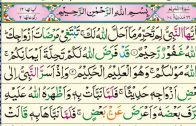 بِسْمِ اللّٰهِ الرَّحْمٰنِ الرَّحِيْمِ
النَّبِيُّ لِمَ تُحَرِّمُ مَآ اَحَلَّ اللّٰهُ لَكَ تَبْتَغِيْ مَرْضَاتَ اَزْوَاجِكَ
اللّٰهُ غَفُوْرٌ رَّحِيْمٌ قَدْ فَرَضَ اللّٰهُ لَكُمْ تَحِلَّةَ اَيْمَانِكُمْ
اللّٰهُ مَوْلٰىكُمْ وَهُوَ الْعَلِيْمُ الْحَكِيْمُ وَاِذْ اَسَرَّ النَّبِيُّ اِلٰى
اَزْوَاجِهٖ حَدِيْثًا فَلَمَّا نَبَّاَتْ بِهٖ وَاَظْهَرَهُ اللّٰهُ عَلَيْهِ
بَعْضَهٗ وَاَعْرَضَ عَنْ بَعْضٍ فَلَمَّا نَبَّاَهَا بِهٖ قَالَتْ